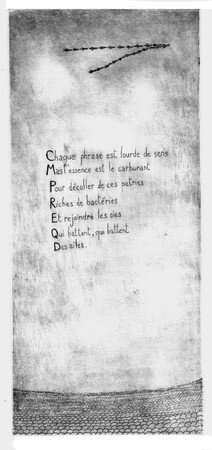 Chaque phrase est lourde de sens
Mais l'essence est le carburant
Pour décoller de ces patries
Riches de bactéries
Et rejoindre les oies
Qui battent, qui battent
Des ailes.